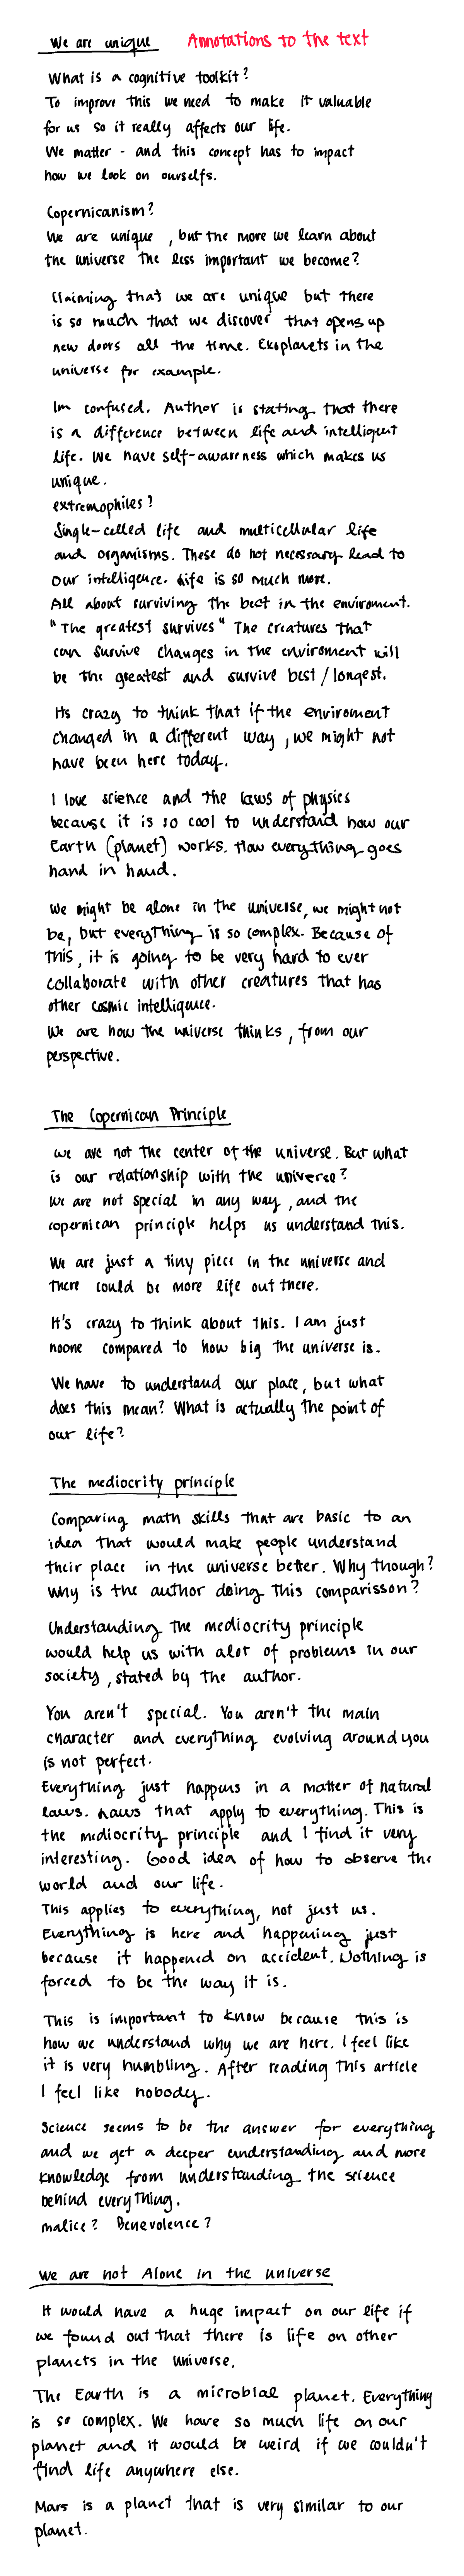 We are unique Annotations to the text
What is a cognitive toolkit?
To improve this we need to make it valuable
for us so it really affects our life.
We matter - and this concept has to impact
how we look on ourselfs.
Copernicanism?
We are unique, but the more we learn about
the universe the less important we become?
Claiming that we are unique but there
is so much that we discover that opens up
new doors all the time. Exoplanets in the
universe for example.
Im confused. Author is stating that there
is a difference between life and intelligent
life. We have self-awareness which makes us
unique.
extremophiles?
Single-celled life and multicellular life
and organisms. These do not necessary lead to
our intelligence. Life is so much more.
All about surviving the best in the enviroment.
"The greatest survives" The creatures that
can survive changes in the enviroment will
be the greatest and survive best/longest.
Its crazy to think that if the enviroment
changed in a different way, we might not
have been here today.
I love science and the laws of physics
because it is so cool to understand how our
Earth (planet) works. How everything goes
hand in hand.
We might be alone in the universe, we might not
be, but everything is so complex. Because of
this, it is going to be very hard to ever
collaborate with other creatures that has
other cosmic intelligence.
We are how the universe thinks, from our
perspective.
The Copernican Principle
We are not the center of the universe. But what
is our relationship with the universe?
We are not special in any way, and the
copernican principle helps us understand this.
We are just a tiny piece in the universe and
there could be more life out there.
It's crazy to think about this. I am just
noone compared to how big the universe is.
We have to understand our place, but what
does this mean? What is actually the point of
our life?
The mediocrity principle
Comparing math skills that are basic to an
idea that would make people understand
their place in the universe better. Why though?
Why is the author doing this comparisson?
Understanding the mediocrity principle
would help us with alot of problems in our
society, stated by the author.
You aren't special. You aren't the main
character and everything evolving around you
is not perfect.
Everything just happens in a matter of natural
laws. Laws that apply to everything. This is
the mediocrity principle and I find it very
interesting. Good idea of how to observe the
world and our life.
This applies to everything, not just us.
Everything is here and happening just
because it happened on accident. Nothing is
forced to be the way it is.
This is important to know because this is
how we understand why we are here. I feel like
it is very humbling. After reading this article
I feel like nobody.
Science seems to be the answer for everything
and we get a deeper understanding and more
knowledge from understanding the science
behind everything.
malice? Benevolence?
We are not Alone in the universe
It would have a huge impact on our life if
we found out that there is life on other
planets in the universe.
The Earth is a microbial planet. Everything
is so complex. We have so much life on our
planet and it would be weird if we couldn't
find life anywhere else.
Mars is a planet that is very similar to our
planet.